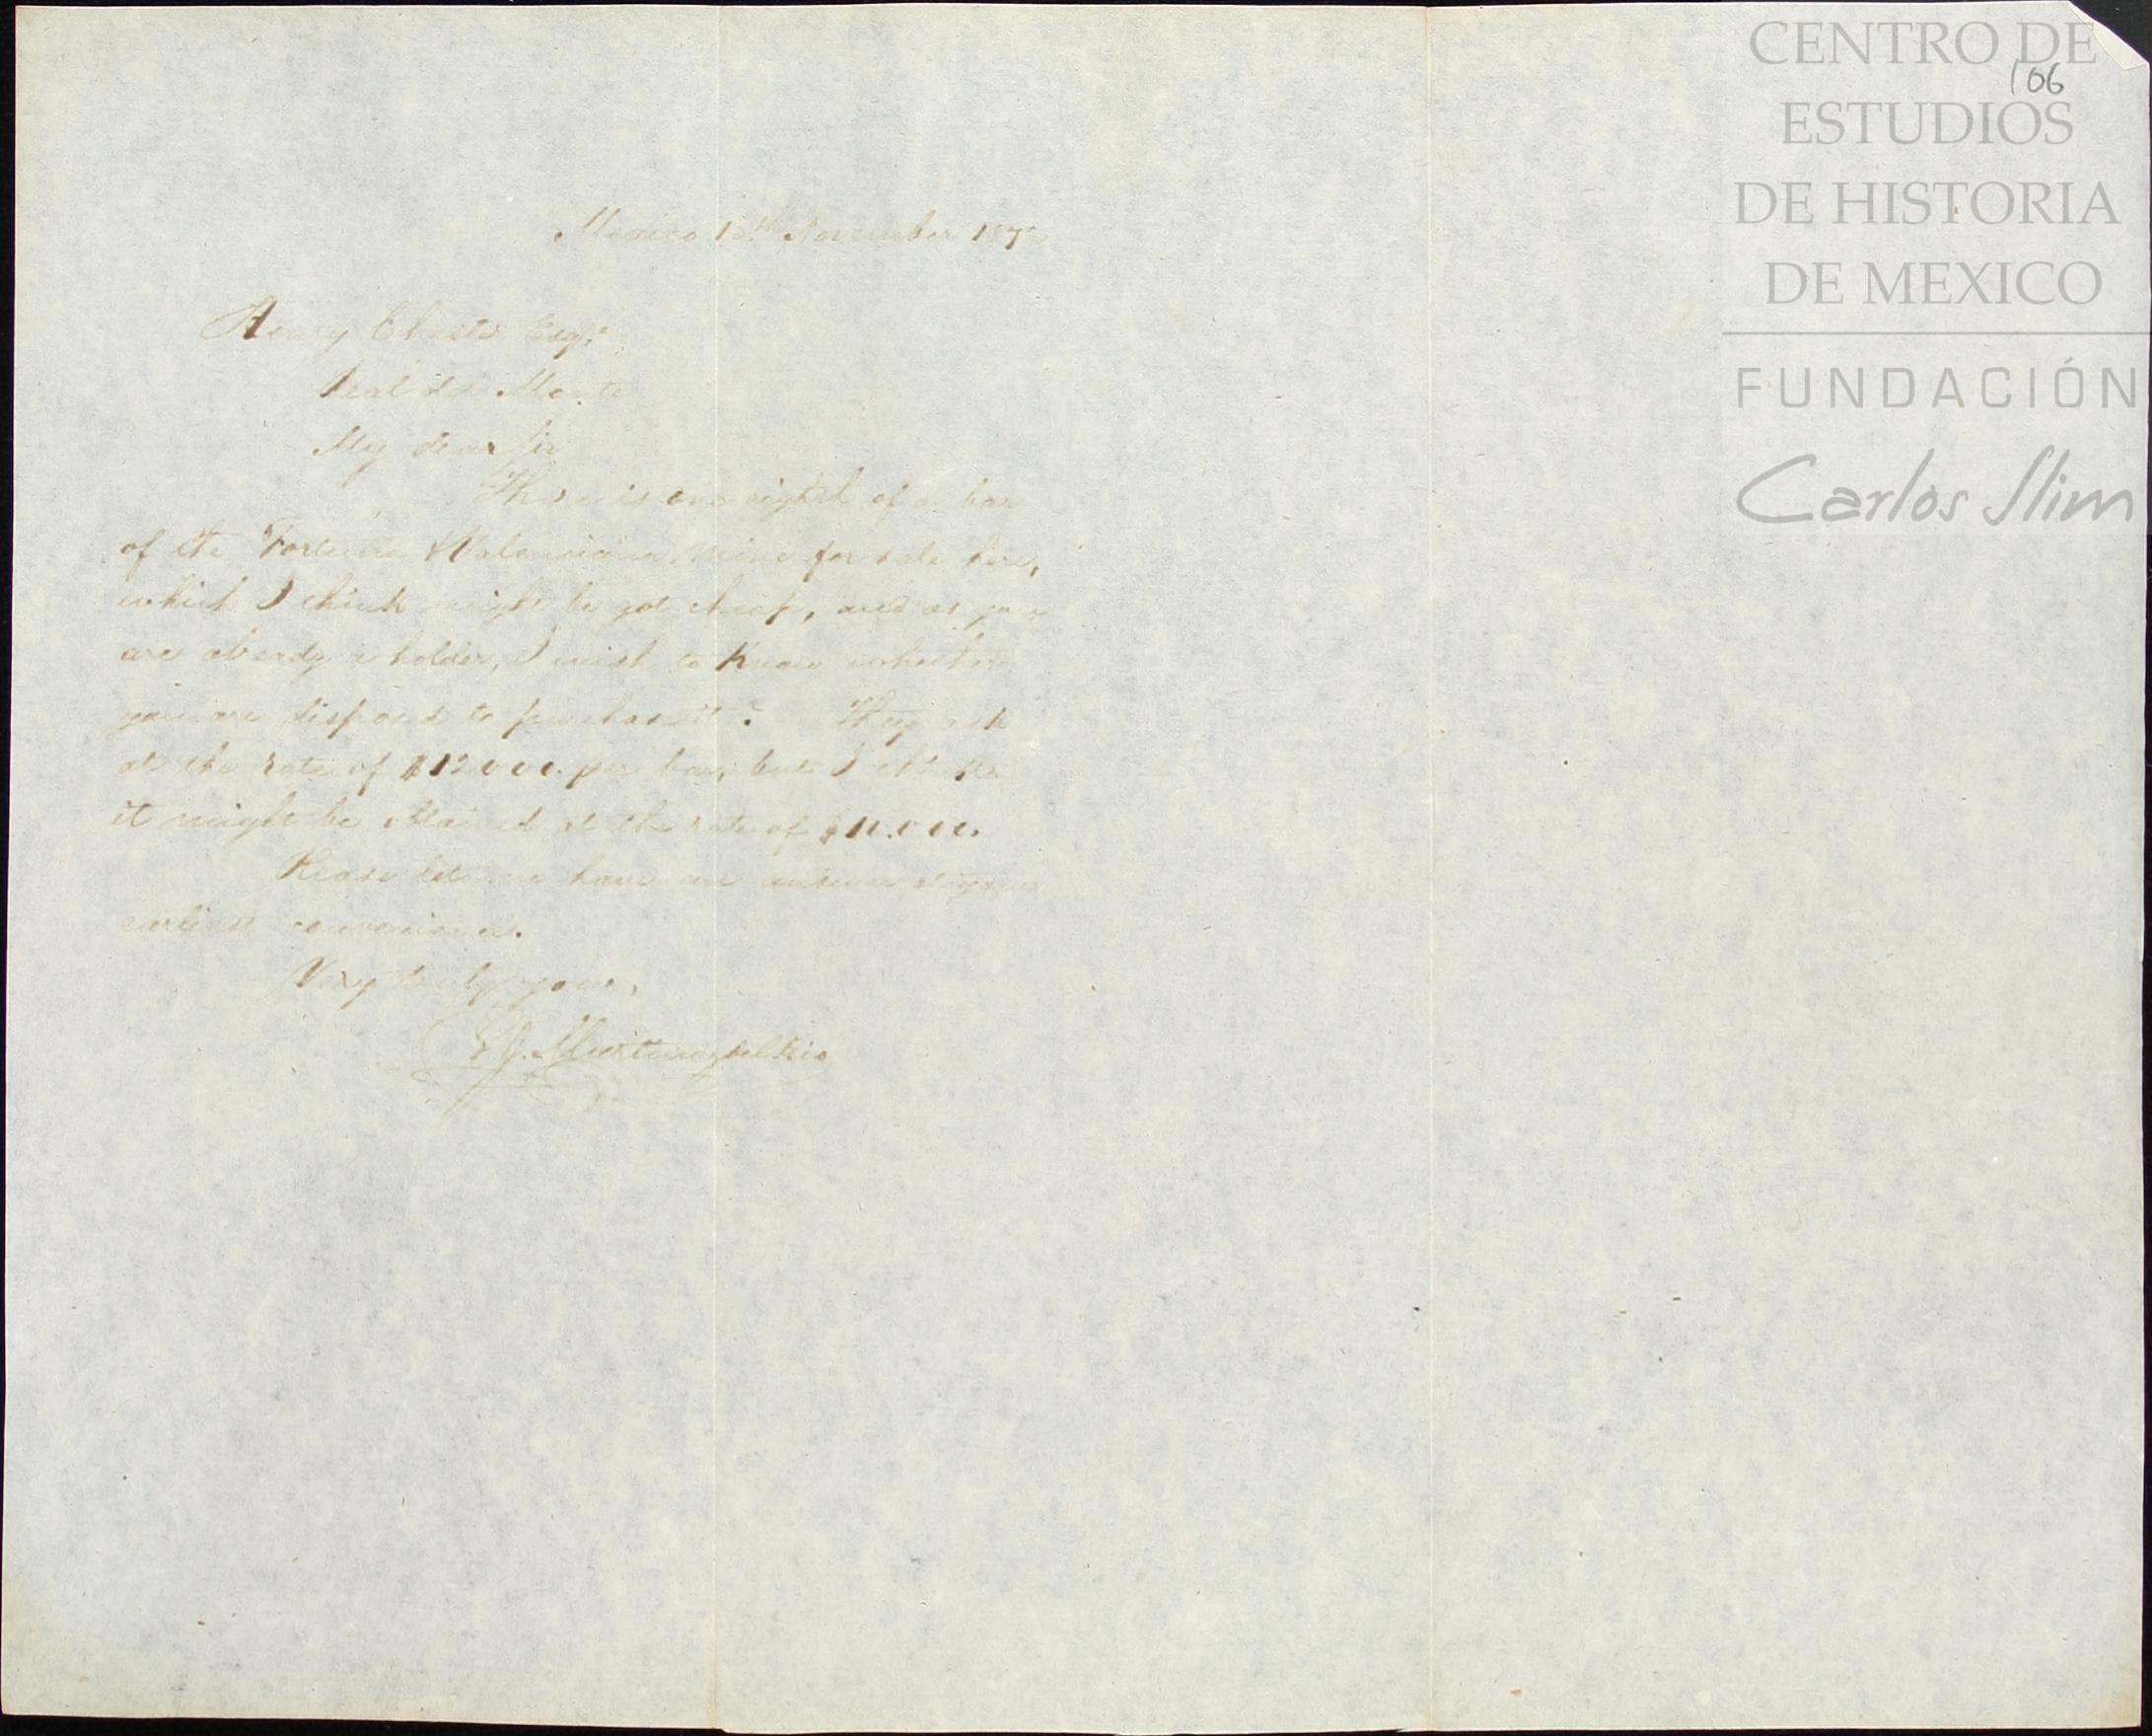 CENTRO DE
ESTUDIOS
DE HISTORIA
DE MEXICO
FUNDACIÓN
Carlos Slim
106
Mexico November
Henry Chester Esqr.
Real del Monte
My dear Sir
There is one eighth of a bar
of the Fortuna & Valenciana Mine for sale here,
which I think might be got cheap, and as you
are already a holder, I wish to know whether
you are disposed to purchase it? They ask
at the rate of $12000. per bar, but I think
it might be obtained at the rate of
Please let me have an answer at your
earliest convenience.
Very truly yours,
Martinez del Rio